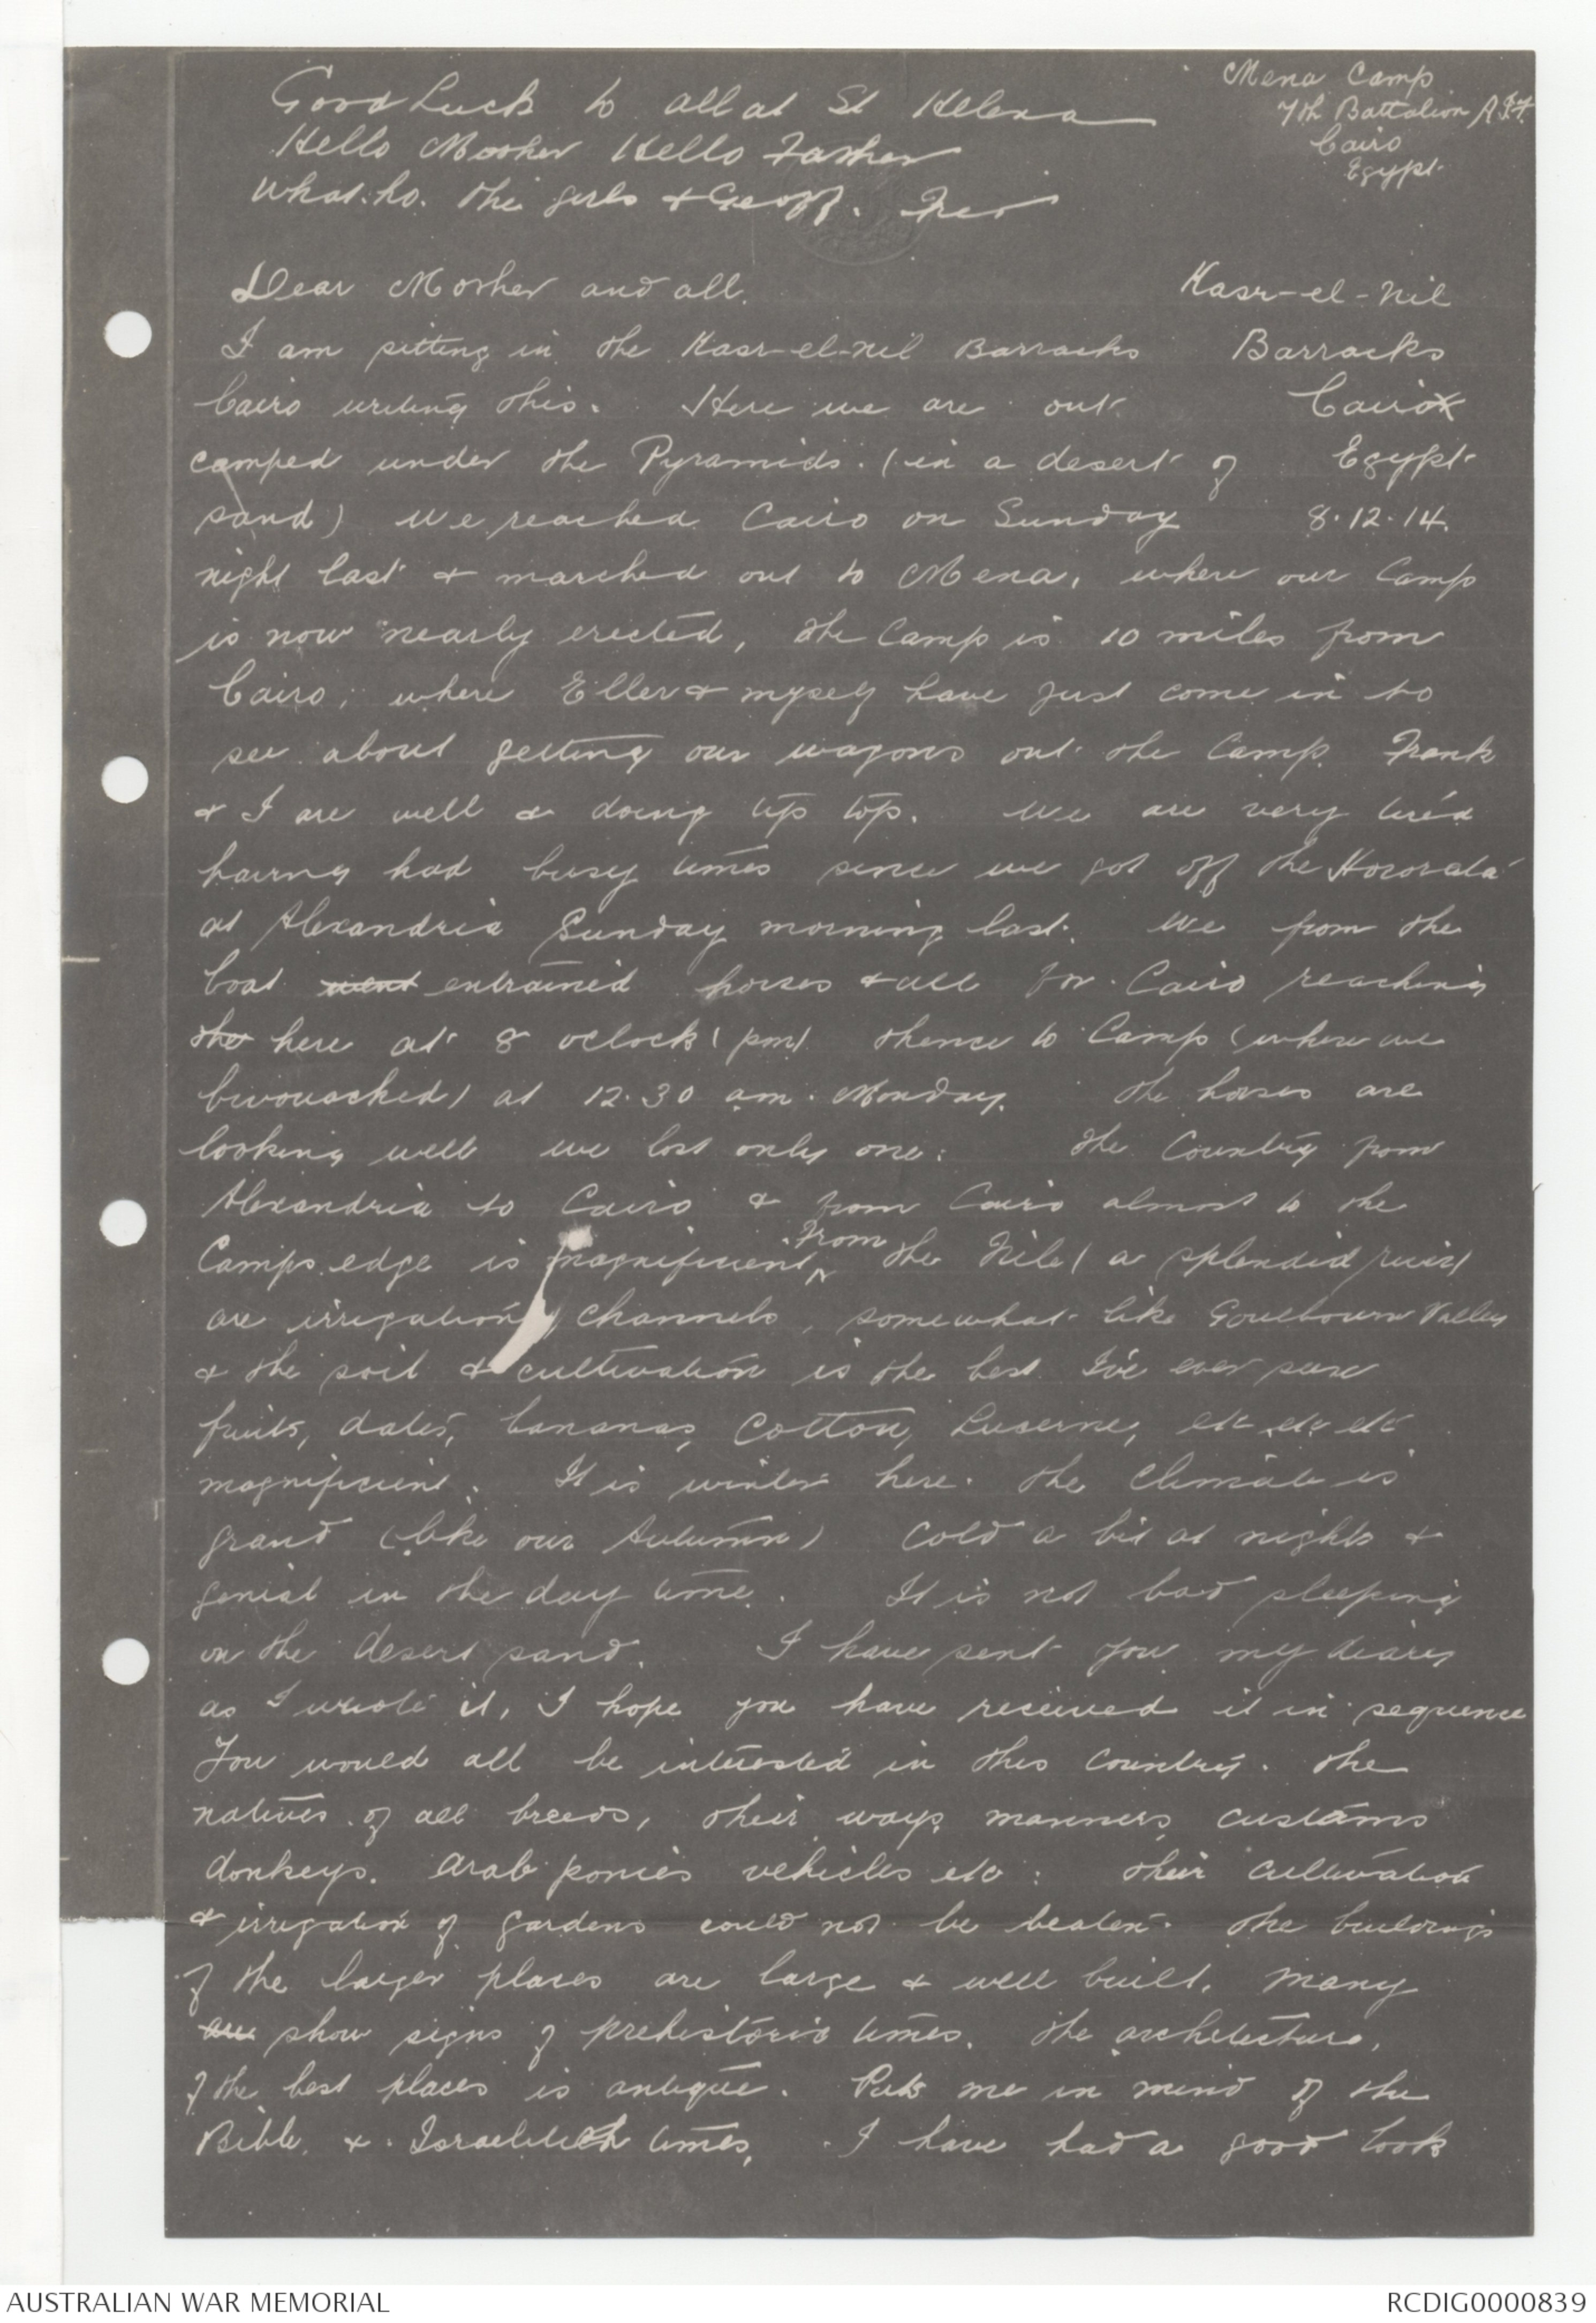 Good Luck to all at St Helena
Hello Mother Hello Father
What. ho. the girls & Geoff.
Mena Camp
7th Battalion A.I.F.
Cairo
Egypt.
Dear Mother and all.
Kasr-el-Nil
Barracks
Cairo
Egypt
8.12.14.
I am sitting in the Kasr-el-nil Barracks
Cairo writing this. Here we are out
camped under the Pyramids. (in a desert of
sand) We reached Cairo on Sunday
night last & marched out to Mena, where our Camp
is now nearly erected, the Camp is 10 miles from
Cairo, where Eller & myself have just come in to
see about getting our wagons out the Camp. Frank
& I are well & doing tip top. We are very tired
having had busy times since we got off the Hororata
at Alexandria Sunday morning last. We from the
boat went entrained horses & all for Cairo reaching
the here at 8 oclock (pm) thence to Camp (where we
bivouacked) at 12.30 am. Monday. The horses are
looking well we lost only one. The Country from
Alexandria to Cairo & from Cairo almost to the
Camps edge is magnificient From the Nile (a splendid river)
are irrigation channels, somewhat like Goulbourn Valley
& the soil & cultivation is the best I've ever seen
fruits, dates, bananas, Cotton, Lucerne, etc etc etc
magnificient. It is winter here. The Climate is
grand (like our Autumn) Cold a bit at nights &
genial in the day time. It is not bad sleeping
on the desert sand. I have sent you my diary
as I wrote it, I hope you have received it in sequence
You would all be interested in this Country. The
natives of all breeds, their ways, manners, customs
donkeys. Arab ponies vehicles etc: their cultivation
& irrigation of gardens could not be beaten. The buildings
of the larger places are large & well built. Many
are show signs of prehistoric times. The architecture,
of the best places is antique. Puts me in mind of the
Bible, & Israelitich times, I have had a good look
AUSTRALIAN WAR MEMORIAL
RCDIG0000839